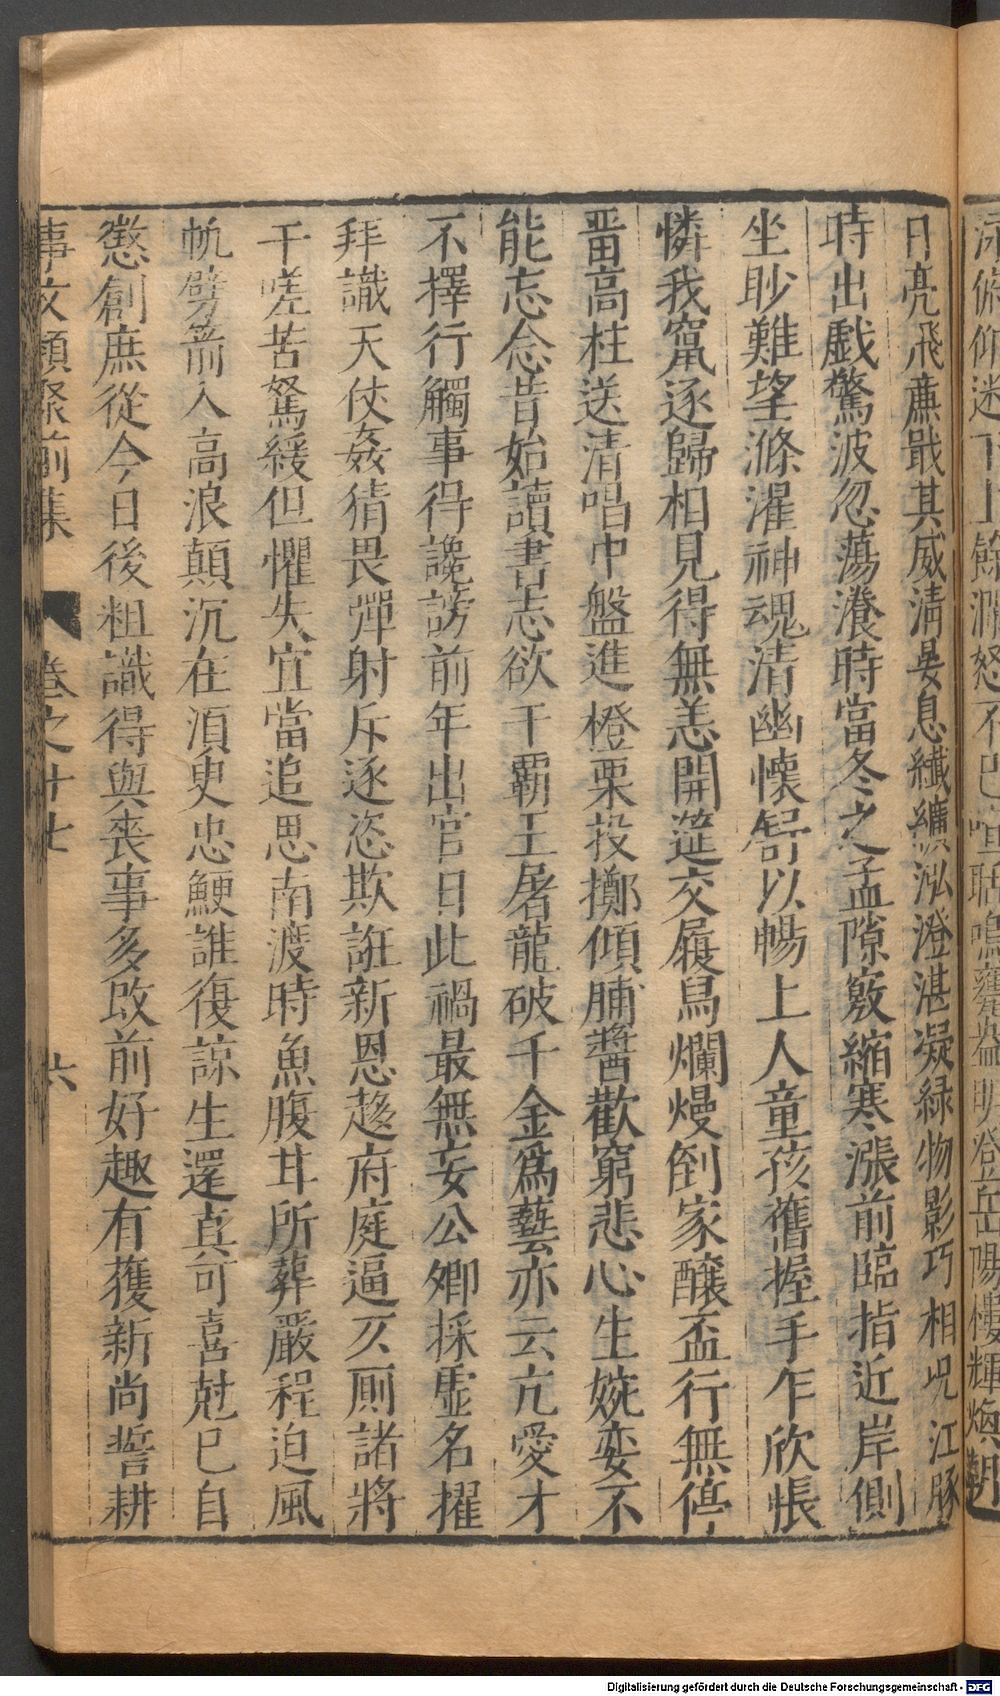 泳俯仰迷下上餘瀾怒不已喧聒鳴甕盎明登岳陽樓輝煥朝
日亮飛廉戢其威清晏息纖纊泓澄湛凝緑物影巧相况江豚
時出戲驚波忽蕩瀁時當冬之孟隙竅縮寒漲前臨指近岸側
坐眇難望滌濯神魂清幽懐舒以暢上人童孩舊握手乍欣悵
憐我竄逐歸相見得無恙開筵交履舄爛熳倒家釀盃行無停
畨高柱送清唱中盤進橙栗投擲傾脯醬歡窮悲心生婉孌不
能忘念昔始讀書志欲干覇王屠龍破千金爲藝亦云亢愛才
不擇行觸事得讒謗前年出官日此禍最無妄公卿採虚名擢
拜識天仗姦猜畏彈射斥逐恣欺誑新恩趍府庭逼仄厠諸將
于嗟苦駑緩但懼失宜當追思南渡時魚腹甘所葬嚴程迫風
帆劈箭入高浪顛沉在湏㬰忠鯁誰復諒生還真可喜尅巳自
懲創庶從今日後粗識得與丧事多改前好趣有獲新尚誓耕
事文類聚前集 卷之十七 六
Digitalisierung gefördert durch die Deutsche Forschungsgemeinschaft - DFG